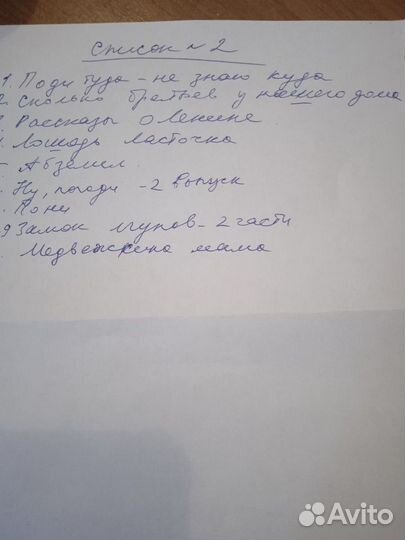 Список №2
1. Поди туда - не знаю куда
2. Сколько братьев у нашего дома
Рассказы о Ленине
Лошадь ласточка
Абземил
Ну, погоди - 2 выпуск
Пони
9 Замок лгунов - 2 части
Медвежкина мама
Avito